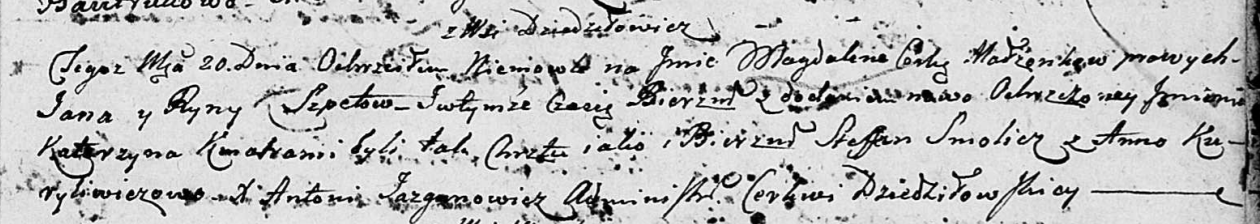 z Wsi Dziedziłowicz
Tegoż Mja 20. Dnia Ochrzciłem Niemowle na Jmie Magdalena Corkę Małżenkow prawych
Jana y Ryny Szpetow Jwtymże Czasię Bierzm z dodaniem nowo Ochrzczoney Jmienia
Katarzyna Kmotrami byli tak Chrztu iako i Bierzm Steffan Smolicz z Anno Ku-
ryliwiczowo X Antoni Jazganowicz Adminiſtr. Cerkwi Dziedziłowſkiey